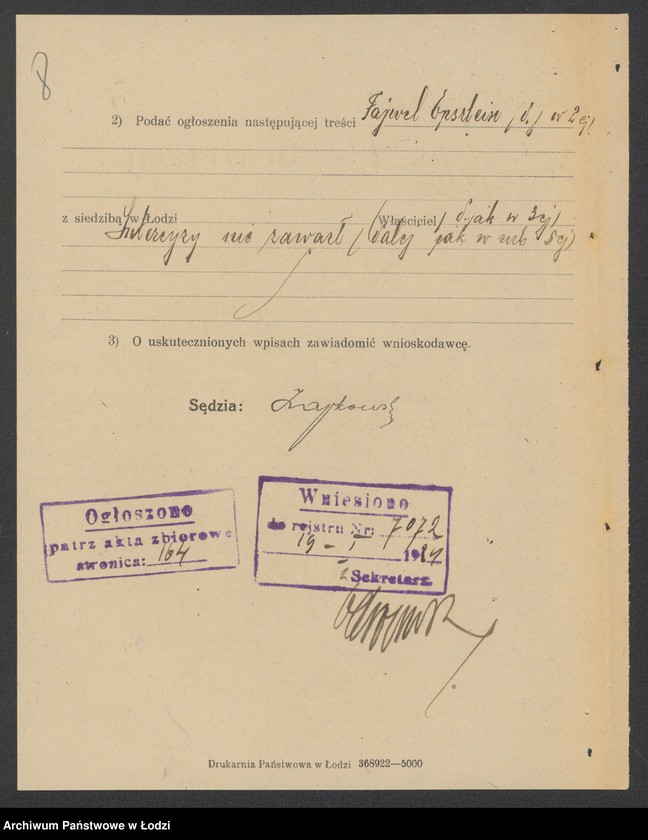 8
2) Podać ogłoszenia następującej treści Fajwel Epsztein (d.j w 2ej)
z siedzibą w Łodzi (Właściciel) d. jak w 3ej)
Intercyzy nie zawarł (dalej jak w rub 5ej)
3) O uskutecznionych wpisach zawiadomić wnioskodawcę.
Sędzia:
Ogłoszono
patrz akta zbiorowe
stronica: 164
Wniesiono
do rejstru Nr: 7072
19 - I 19
Sekretarz
Drukarnia Państwowa w Łodzi 368922—5000
Archiwum Państwowe w Łodzi